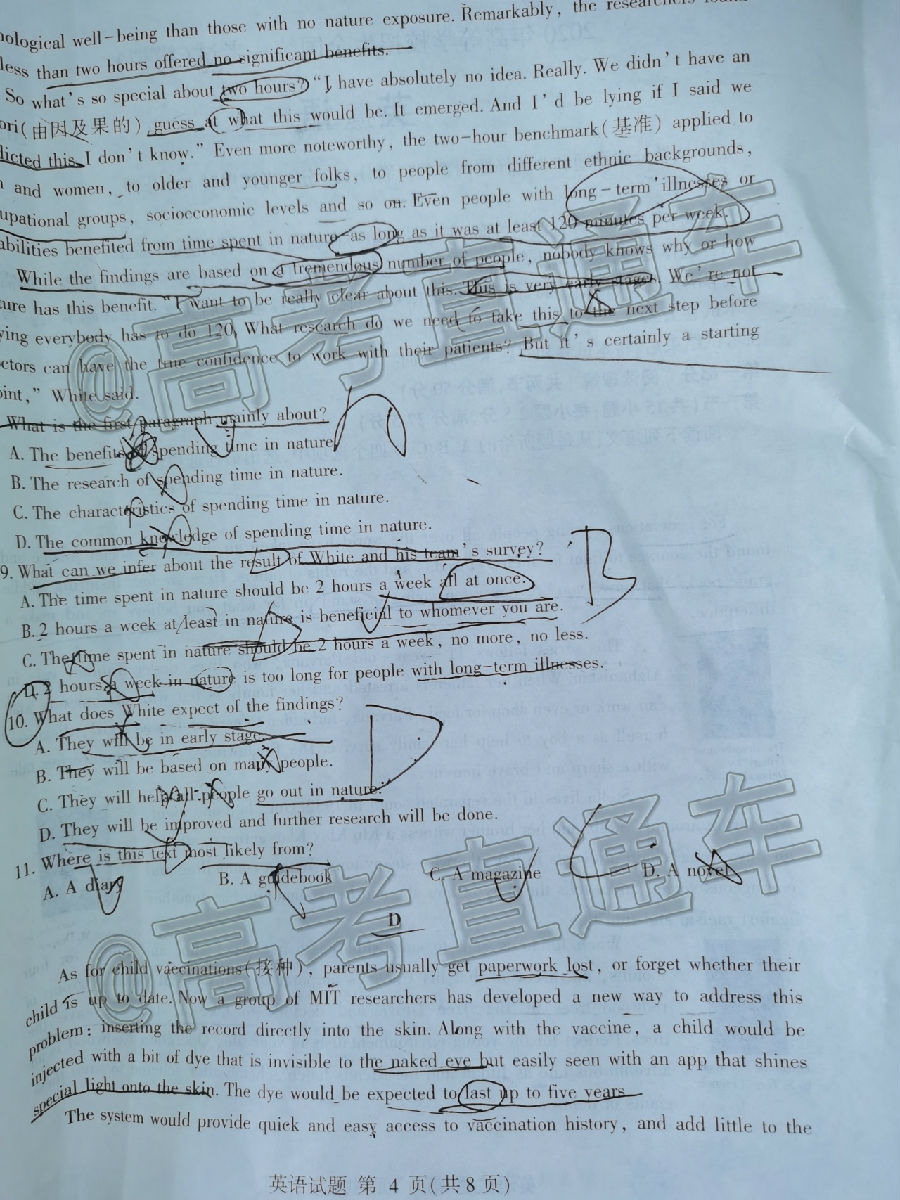 ological well-being than those with no nature exposure. Remarkably, the researchers found
less than two hours offered no significant benefits.
So what's so special about two hours? "I have absolutely no idea. Really. We didn't have an
ori(由因及果的) guess at what this would be. It emerged. And I'd be lying if I said we
dicted this. I don't know." Even more noteworthy, the two-hour benchmark(基准) applied to
and women, to older and younger folks, to people from different ethnic backgrounds,
upational groups, socioeconomic levels and so on. Even people with long-term illnesses or
abilities benefited from time spent in nature as long as it was at least 120 minutes per week.
While the findings are based on a tremendous number of people, nobody knows why or how
ure has this benefit. "I want to be really clear about this. This is very early stage. We're not
ying everybody has to do 120. What research do we need to take this to the next step before
ctors can have the true confidence to work with their patients? But it's certainly a starting
oint," White said.
What is the first paragraph mainly about?
A. The benefits of spending time in nature.
B. The research of spending time in nature.
C. The characteristics of spending time in nature.
D. The common knowledge of spending time in nature.
9. What can we infer about the result of White and his team's survey?
A. The time spent in nature should be 2 hours a week all at once.
B. 2 hours a week at least in nature is beneficial to whomever you are.
C. The time spent in nature should be 2 hours a week, no more, no less.
D. 2 hours a week in nature is too long for people with long-term illnesses.
B
10. What does White expect of the findings?
A. They will be in early stage.
B. They will be based on many people.
C. They will help all people go out in nature.
D. They will be improved and further research will be done.
D
11. Where is this text most likely from?
A. A diary B. A guidebook C. A magazine D. A novel
C
D
As for child vaccinations(接种), parents usually get paperwork lost, or forget whether their
child is up to date. Now a group of MIT researchers has developed a new way to address this
problem: inserting the record directly into the skin. Along with the vaccine, a child would be
injected with a bit of dye that is invisible to the naked eye but easily seen with an app that shines
special light onto the skin. The dye would be expected to last up to five years.
The system would provide quick and easy access to vaccination history, and add little to the
英语试题 第 4 页(共 8 页)
@高考直通车
@高考直通车